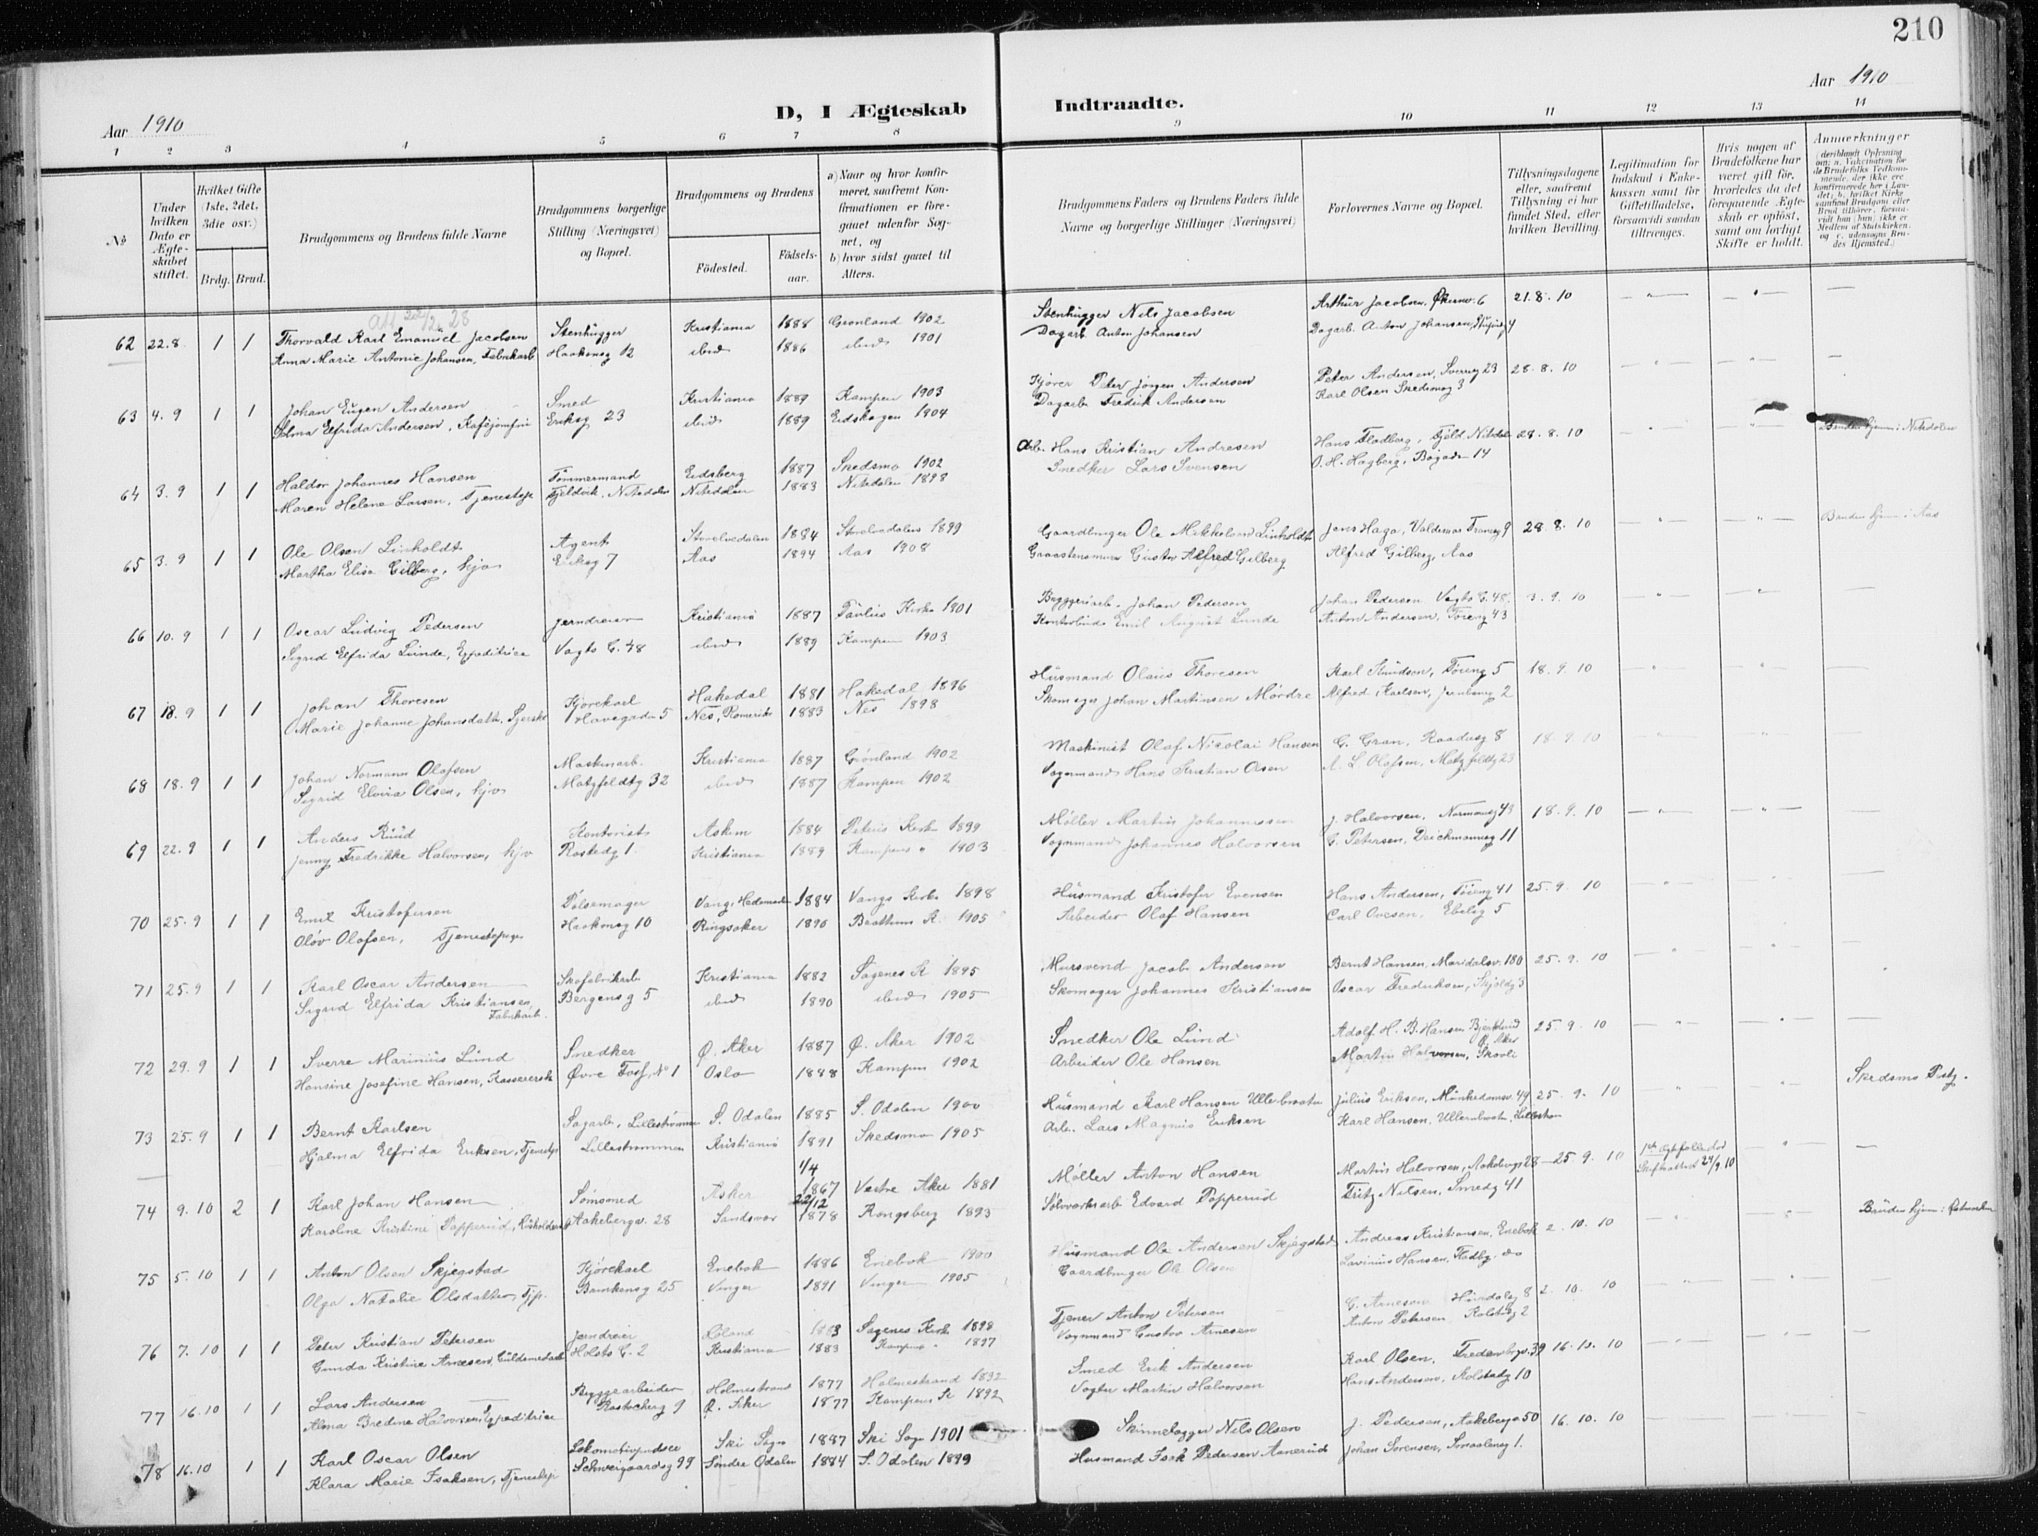 210
Aar 1910
D, I Ægteskab Indtraadte.
Aar 1910
1 2 3 4 5 6 7 8 9 10 11 12 13 14
№
Under hvilken Dato er Ægteskabet stiftet.
Hvilket Gifte (1ste, 2det, 3die osv.)
Brdg. Brud.
Brudgommens og Brudens fulde Navne
Brudgommens borgerlige Stilling (Næringsvei) og Bopæl.
Brudgommens og Brudens
Födested.
Födselsaar.
a) Naar og hvor konfirmeret, saafremt Konfirmationen er foregaaet udenfor Sognet, og
b) hvor sidst gaaet til Alters.
Brudgommens Faders og Brudens Faders fulde Navne og borgerlige Stillinger (Næringsvei)
Forlovernes Navne og Bopæl.
Tillysningsdagene eller, saafremt Tillysning ei har fundet Sted, efter hvilken Bevilling.
Legitimation for Indskud i Enkekassen samt for Giftetilladelse, forsaavidt saadan tiltrænges.
Hvis nogen af Brudefolkene har været gift før, hvorledes da det foregaaende Ægteskab er oplöst, samt om lovligt Skifte er holdt.
Anmærkninger
62 22.8 1 1 Thorvald Karl Emanuel Jacobsen Stenhugger Kristiania 1888 Grønland 1902 Stenhugger Nils Jacobsen Arthur Jacobsen, Økernv. 6 21.8.10
Anna Marie Antonie Johansen, Fabrikarb Haakonsg 12 ibid 1886 ibid 1901 Dagarb. Anton Johansen Dagarb. Anton Johansen, 4
63 4.9 1 1 Johan Eugen Andersen Smed Kristiania 1889 Kampen 1903 Kjører Peter Jörgen Andersen Peter Andersen, Sverresg 23 28.8.10
Selma Elfrida Andersen, Kaféjomfru Eriksg 23 ibid 1889 Eidskogen 1904 Dagarb. Fredrik Andersen Karl Olsen Skedsmog 3
64 3.9 1 1 Haldor Johannes Hansen Tømmermand Eidsberg 1887 Skedsmo 1902 Arb. Hans Kristian Andresen Hans Flodberg, Fjeld Nitedalen 28.8.10 Brudens hjem: Nitedalen
Maren Helene Larsen, Tjenestepi Fjeldvik, Nitedalen Nitedalen 1883 Nitedalen 1898 Snedker Lars Svensen O. H. Hagberg, Bøgaden 14
65 3.9 1 1 Ole Olsen Linholdt Agent Storelvedalen 1884 Storelvedalen 1899 Gaardbruger Ole Mikkelsen Linholdt Jens Haga, Valdemar Thranesg 9 28.8.10 Brudens hjem: Aas
Martha Elisa Gilberg, hjv Eriksg 7 Aas 1894 Aas 1908 Graastensmurer Gustav Alfred Gilberg Alfred Gilberg, Aas
66 10.9 1 1 Oscar Ludvig Pedersen Jerndreier Kristiania 1887 Paulus Kirke 1901 Bryggeriarb. Johan Pedersen Johan Pedersen Vogts G. 48 3.9.10
Sigrid Elfrida Lunde, Expeditrice Vogts G. 48 ibid 1889 Kampen 1903 Kontorbud Emil August Lunde Anton Andersen, Töieng 43
67 18.9 1 1 Johan Thoresen Kjørekarl Hakedal 1881 Hakedal 1896 Husmand Olaus Thoresen Karl Knudsen, Töieng 5 18.9.10
Marie Johanne Johansdatter, Syerske Havegaden 5 Nes, Romerike 1883 Nes 1898 Skomager Johan Martinsen Mordre Alfred Karlsen, 2
68 18.9 1 1 Johan Normann Olafsen Maskinarb. Kristiania 1887 Grönland 1902 Maskinist Olaf Nicolai Hansen G. Gran, Raadesg 8 18.9.10
Sigrid Elvira Olsen, hjv Motzfeldtg 32 ibid 1887 Kampen 1902 Vognmand Hans Kristian Olsen A. L Olafsen, Motzfeldtg 23
69 22.9 1 1 Anders Ruud Kontorist Askim 1884 Petrus Kirke 1899 Møller Martin Johannessen J. Halvorsen, Normansg 43 18.9.10
Jenny Fredrikke Halvorsen, hjv Rostedg 1. Kristiania 1889 Kampens " 1903 Vognmand Johannes Halvorsen G. Petersen, Deichmannsg 11
70 25.9 1 1 Emil Kristofersen Pölsemager Vang, Hedemarken 1884 Vangs Kirke 1898 Husmand Kristofer Evensen Hans Andersen, Töieng 41 25.9.10
Olöv Olafsen, Tjenestepige Haakonsg 10 Ringsaker 1890 Brøttums K. 1905 Arbeider Olaf Hansen Carl Ovesen, Ebelsg 5
71 25.9 1 1 Karl Oscar Andersen Skofabrikarb. Kristiania 1882 Sagenes K 1895 Mursvend Jacob Andersen Bernt Hansen, Maridalsv. 180 25.9.10
Sigrid Elfrida Kristiansen, Fabrikarb. Bergensg 5 ibid 1890 ibid 1905 Skomager Johannes Kristiansen Oscar Fredriksen, Skjoldg 3
72 29.9 1 1 Sverre Marinius Lund Snedker Ø. Aker 1887 Ø. Aker 1902 Snedker Ole Lund Adolf H. B. Hansen Bjerklund Ø. Aker 25.9.10
Hansine Josefine Hansen, Kassererske Øvre Foss, No 1 Oslo 1888 Kampen 1902 Arbeider Ole Hansen Martin Halvorsen, Skovli
73 25.9 1 1 Bernt Karlsen Sagarb., Lillestrømmen S. Odalen 1885 S. Odalen 1900 Husmand Karl Hansen Ullerbraaten Julius Eriksen, Munkedamsv. 49 25.9.10 Skedsmo Pstg.
Hjalma Elfrida Eriksen, Tjenestepi Lillestrømmen Kristiania 1891 Skedsmo 1905 Arb. Lars Magnus Eriksen Karl Hansen, Ullernbraaten, Lillestrøm
74 9.10 2 1 Karl Johan Hansen Sömsmed Asker 1/4 1867 Vestre Aker 1881 Møller Anton Hansen Martin Halvorsen, Aakebergv 28 25.9.10 1ste Ægtefelle død
Karoline Kristine Popperud, Aakebergv. 28 Sandsvær 22/12 1878 Kongsberg 1893 Sølvverksarb Edvard Popperud Fritz Nilsen, Smedg 41 Skifteattest 24/9.10
75 5.10 1 1 Anton Olsen Skjegstad Kjørekarl Enebak 1886 Enebak 1900 Husmand Ole Andersen Skjegstad Andreas Kristiansen, Enebak 2.10.10 Brudens hjem:
Olga Natalie Olsdatter, Tjp. Bankensg 25 Vinger 1891 Vinger 1905 Gaardbruger Ole Olsen Lavinius Hansen, do
76 7.10 1 1 Peter Kristian Petersen Jerndreier 1883 Sagenes Kirke 1898 Tjener Anton Petersen C. Arnesen Hurdalsg 8 2.10.10
Gunda Kristine Arnesen, Guldsmedarb Holsts G. 2 Kristiania 1883 Kampens " 1897 Vognmand Gustav Arnesen Anton Petersen Rolstadg 2
77 16.10 1 1 Lars Andersen Byggearbeider Holmestrand 1877 Holmestrand 1892 Smed Erik Andersen Karl Olsen, 39 16.10.10
Alma Bredine Halvorsen, Expeditrice Rostockerg 9 Ø. Aker 1877 Kampens K 1892 Vogter Martin Halvorsen Hans Andersen, Rolstadg 10
78 16.10 1 1 Karl Oscar Olsen Lokomotivpudser Ski Sogn 1887 Ski Sogn 1901 Skinnelægger Nils Olsen J. Pedersen, Aakebergv 50 16.10.10
Klara Marie Isaksen, Tjenestepi Schweigaardsg 99 Søndre Odalen 1884 S. Odalen 1899 Husmand Isak Pedersen Aanerud Johan Sørensen, 1.